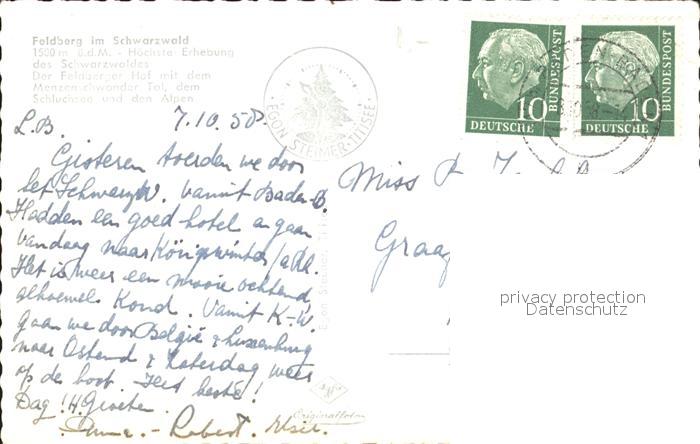 Feldberg im Schwarzwald
1500 m ü.d.M. - Höchste Erhebung
des Schwarzwaldes
Der Feldberger Hof mit dem
Menzenschwander Tal, dem
Schluchsee und den Alpen
EGON STEIMER·TITISEE
10 DEUTSCHE BUNDESPOST
10 DEUTSCHE BUNDESPOST
L.B. 7.10.58.
Gisteren toerden we door
het SchwarzW. vanuit Baden-B.
Hadden een goed hotel en gaan
vandaag naar Königswinter a/Rh.
Het is weer een mooie ochtend
alhoewel koud. Vanuit K-W.
gaan we door België & Luxemburg
naar Ostend & Zaterdag weer
op de boot. Het beste!
Dag! H. Groeten
Robert.
Miss
privacy protection
Datenschutz
Originalfoto